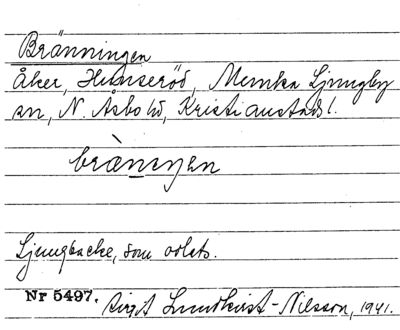 Bränningen
Åker, Hunseröd, Munka Ljungby
sn, N. Åsbo hd, Kristianstads l.
brànen
Ljungbacke, som odlats.
Nr 5497. Birgit Lundkvist-Nilsson, 1941.